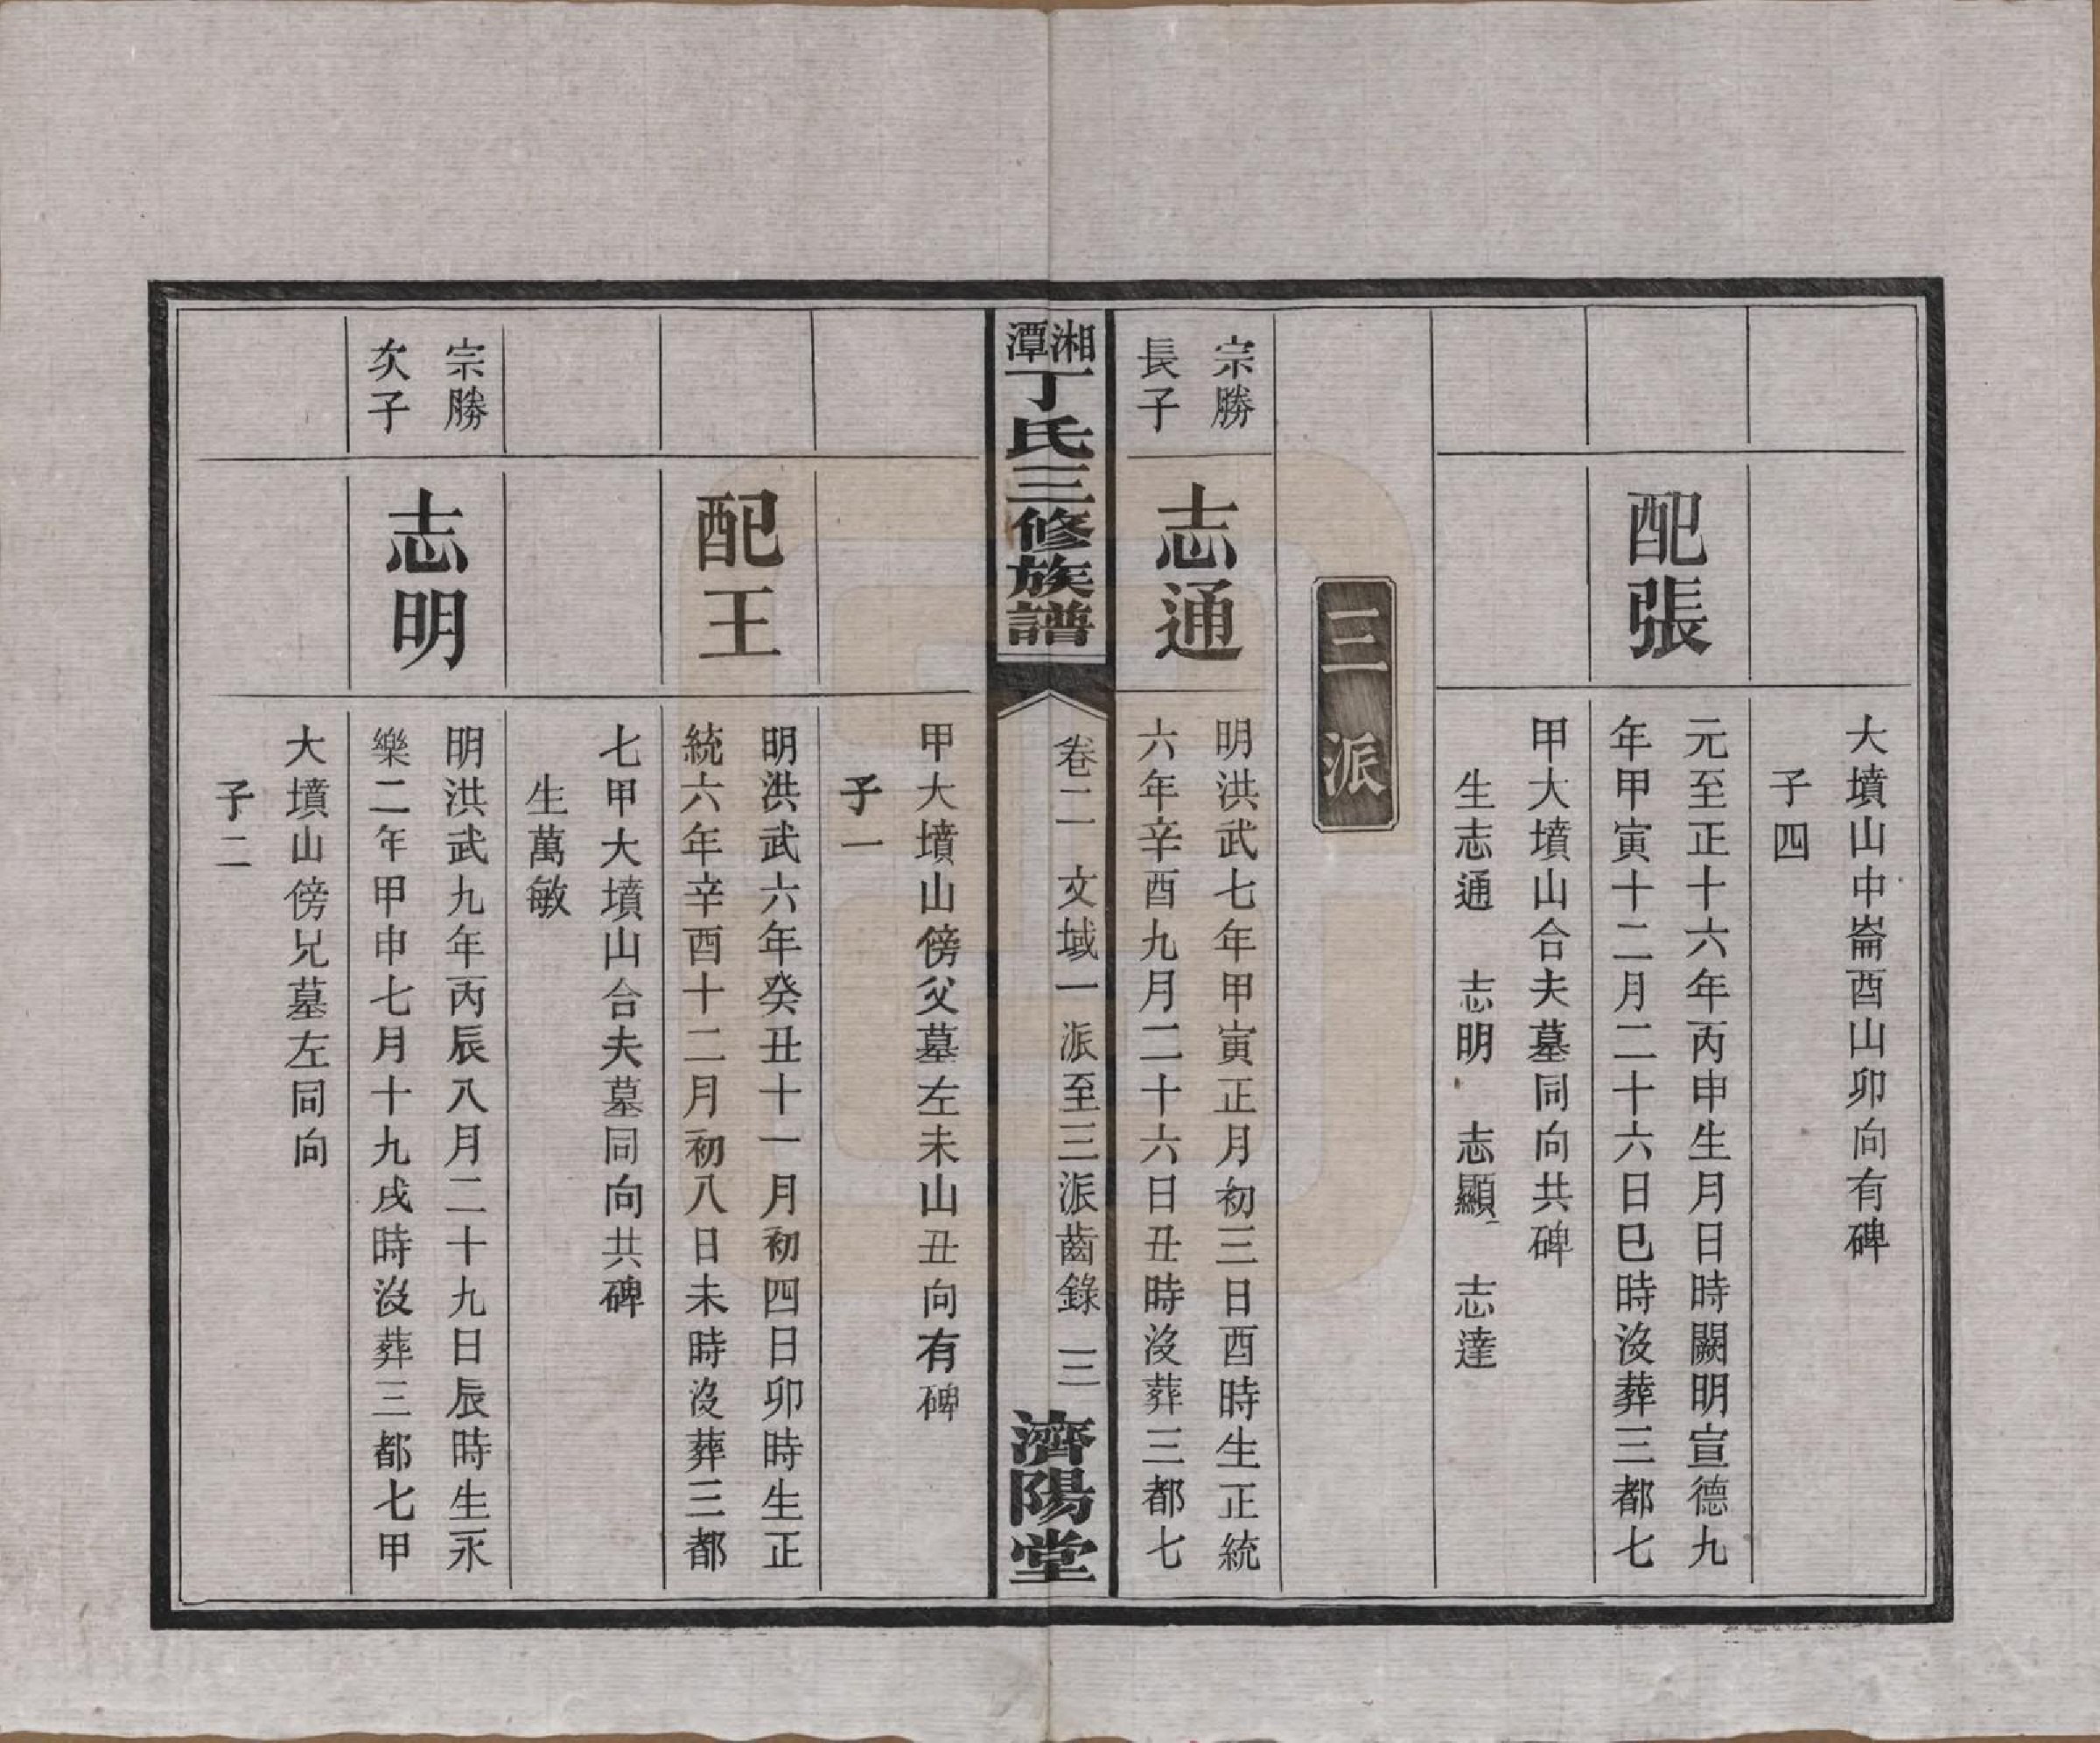 大墳山中崙酉山卯向有碑
子四
配張
元至正十六年丙申生月日時闕明宣德九
年甲寅十二月二十六日巳時沒葬三都七
甲大墳山合夫墓同向共碑
生志通 志明 志顯 志達
三派
宗勝
長子
志通
明洪武七年甲寅正月初三日酉時生正統
六年辛酉九月二十六日丑時沒葬三都七
湘潭丁氏三修族譜
卷二 文域一派至三派齒錄 三
濟陽堂
甲大墳山傍父墓左未山丑向有碑
子一
配王
明洪武六年癸丑十一月初四日卯時生正
統六年辛酉十二月初八日未時沒葬三都
七甲大墳山合夫墓同向共碑
生萬敏
宗勝
次子
志明
明洪武九年丙辰八月二十九日辰時生永
樂二年甲申七月十九戌時沒葬三都七甲
大墳山傍兄墓左同向
子二